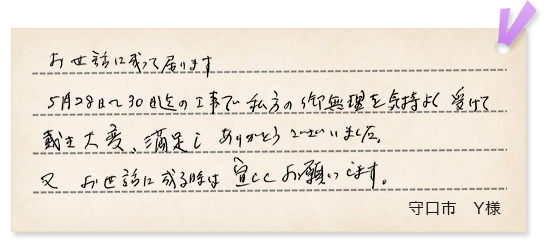 お世話に成って居ります
5月28日〜30日迄の工事で私方の御無理を気持よく受けて
戴き大変、満足し ありがとうございました。
又 お世話に成る時は宜しくお願いします。
守口市 Y様